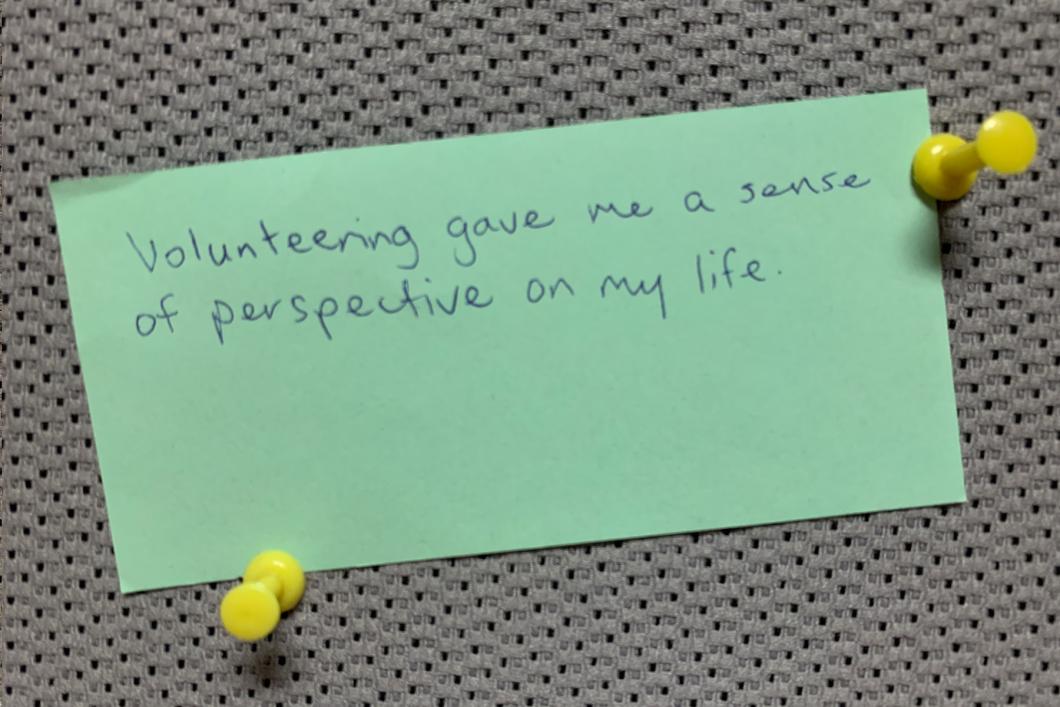 Volunteering gave me a sense
of perspective on my life.